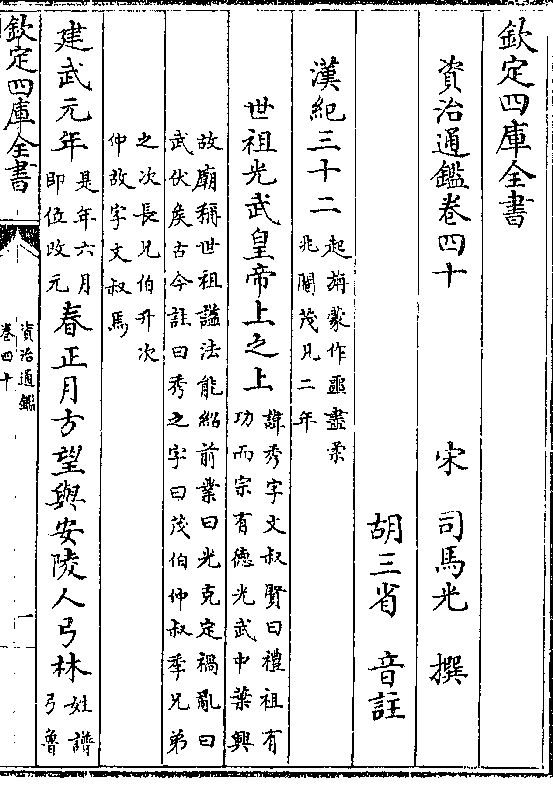 欽定四庫全書
資治通鑑卷四十
宋 司馬光 撰
胡三省 音註
漢紀三十二起旃蒙作噩盡柔
兆閹茂凡二年
世祖光武皇帝上之上諱秀字文叔賢曰禮祖有
功而宗有德光武中葉興
故廟稱世祖諡法能紹前業曰光克定禍亂曰
武伏矦古今註曰秀之字曰茂伯仲叔季兄弟
之次長兄伯升次
仲故字文叔焉
建武元年是年六月
即位改元
春正月方望與安陵人弓林姓譜
弓魯
欽定四庫全書
資治通鑑
卷四十
一